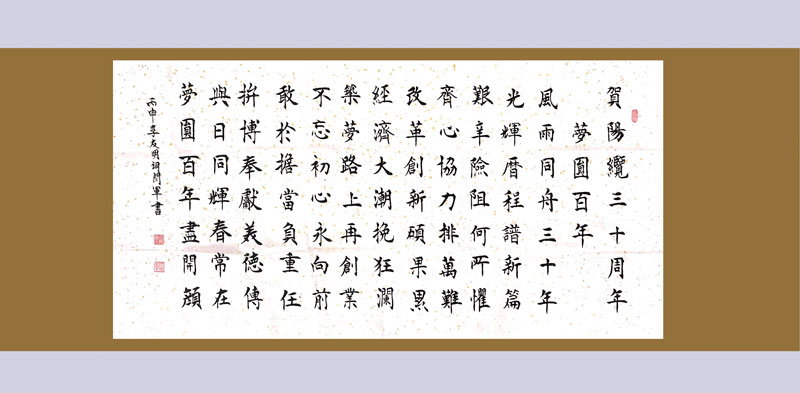 賀陽纜三十周年
夢圓百年
風雨同舟三十年
光輝曆程譜新篇
艱辛險阻何所懼
齊心協力排萬難
改革創新碩果累
經濟大潮挽狂瀾
築夢路上再創業
不忘初心永向前
敢於擔當負重任
拚博奉獻美德傳
與日同輝春常在
夢圓百年盡開顏
丙申李友明詞軍書